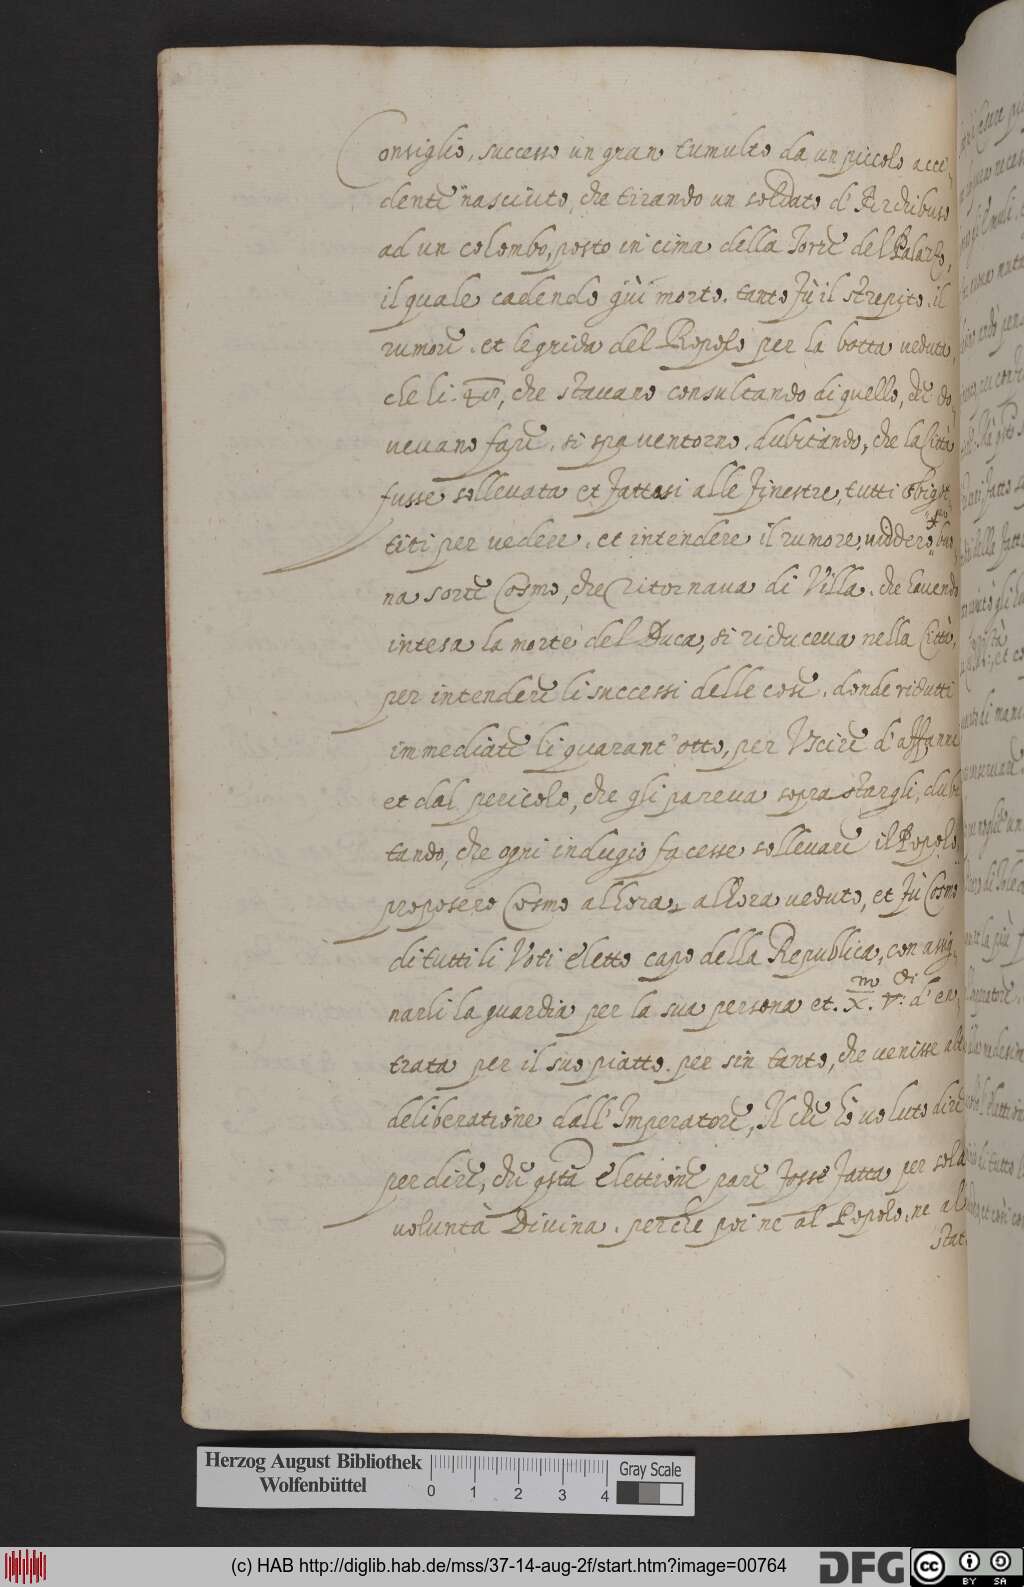 Consiglio, successe un gran tumulto da un piccolo acce
dente nasciuto, che tirando un soldato d'Archibuso
ad un colombo, posto in cima della Torre del Palazzo,
il quale cadendo giù morto. tanto fù il strepito. il
rumore. et le grida del Popolo per la botta veduta,
che li. 48, che stavano consultando di quello, che do
vevano fare. si spaventorno. dubitando, che la Città
fusse sollevata et fattosi alle finestre, tutti sbigot
titi per vedere. et intendere il rumore, viddero buo
na sorte Cosmo, che ritornava di Villa. che havendo
intesa la morte del Duca, si riduceva nella Città,
per intendere li successi delle cose. donde ridutti
immediate li quarant'otto, per Uscire d'affanni
et dal pericolo, che gli pareva soprastargli, dubi
tando, che ogni indugio facesse sollevare il Popolo,
proposero Cosmo alhora, alhora veduto, et fù Cosmo
di tutti li Voti eletto capo della Republica, con asseg
narli la guardia per la sua persona et. X.m V.di d'en,
trata per il suo piatto. per sin tanto, che venisse alt
deliberatione dall'Imperatore, Il che hò voluto dire
per dire, che qsta elettione pare fosse fatta per sola
voluntà Divina. perche poi ne al Popolo. ne al
Stat
Herzog August Bibliothek
Wolfenbüttel
0 1 2 3 4
Gray Scale
(c) HAB http://diglib.hab.de/mss/37-14-aug-2f/start.htm?image=00764
DFG
cc BY SA